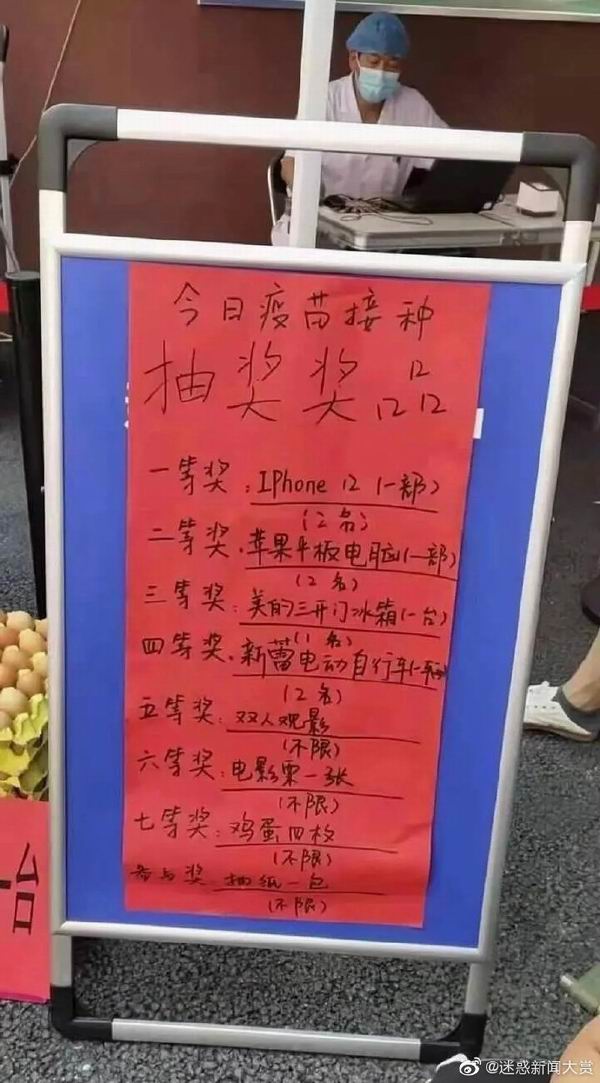 今日疫苗接种
抽奖奖品
一等奖：IPhone 12（一部）
（2名）
二等奖：苹果平板电脑（一部）
（2名）
三等奖：美的三开门冰箱（一台）
（1名）
四等奖：新蕾电动自行车（一辆）
（2名）
五等奖：双人观影
（不限）
六等奖：电影票一张
（不限）
七等奖：鸡蛋四枚
（不限）
参与奖 抽纸一包
（不限）
台
@迷惑新闻大赏